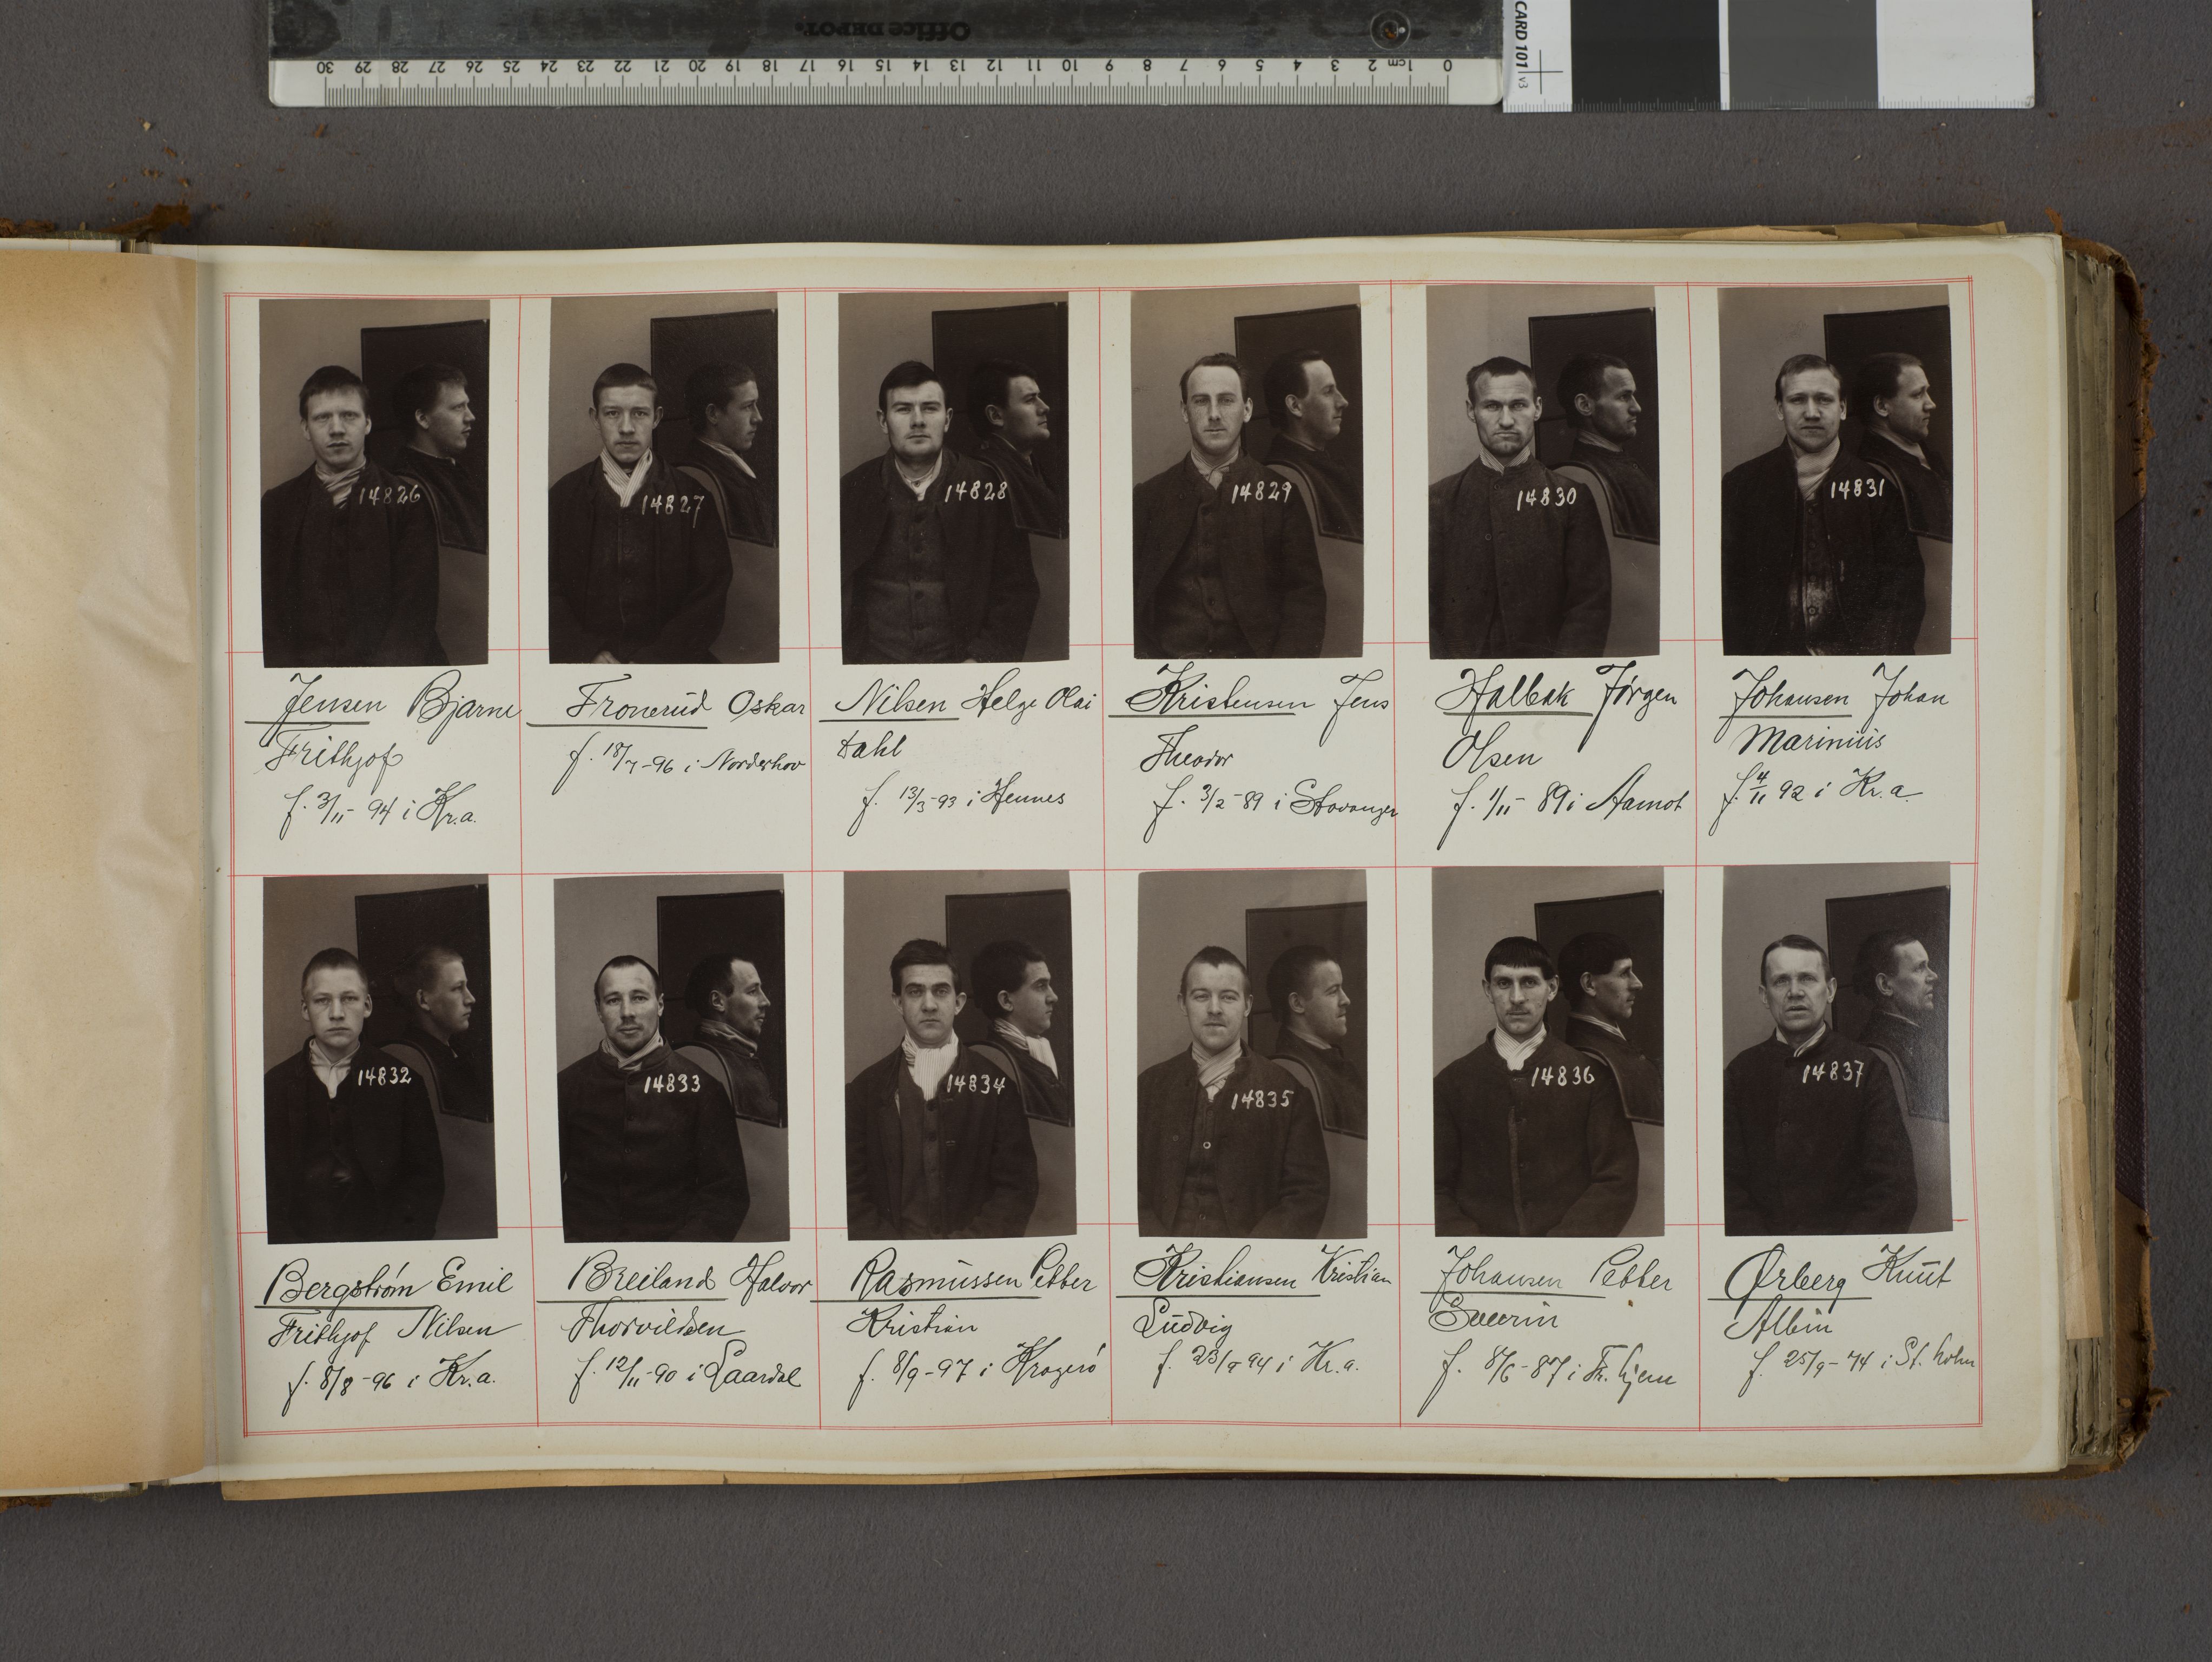 Office DEPOT.
0 1cm 2 3 4 5 6 7 8 9 10 11 12 13 14 15 16 17 18 19 20 21 22 23 24 25 26 27 28 29 30
CARD 101 v3
14826
14827
14828
14829
14830
14831
Jensen Bjarne
Frithjof
f. 3/11- 94 i Kr.a.
Fronerud Oskar
f. 18/7-96 i Norderhov
Nilsen Helge Olai
Dahl
f. 13/3-93 i Hennes
Kristensen Jens
Theodor
f. 3/2-89 i Stavanger
Halbak Jørgen
Olsen
f. 1/11- 89 i Aamot
Johansen Johan
Marinius
f. 4/11 92 i Kr.a.
14832
14833
14834
14835
14836
14837
Bergstrøm Emil
Frithjof Nilsen
f. 8/8-96 i Kr.a.
Breiland Halvor
Thorvildsen
f. 12/11-90 i Laardal
Rasmussen Petter
Kristian
f. 8/9-97 i Kragerø
Kristiansen Kristian
Ludvig
f. 23/9 94 i Kr.a.
Johansen Petter
Severin
f. 8/6-87 i Tr.hjem
Ørberg Knut
Albin
f. 25/9-74 i St.holm